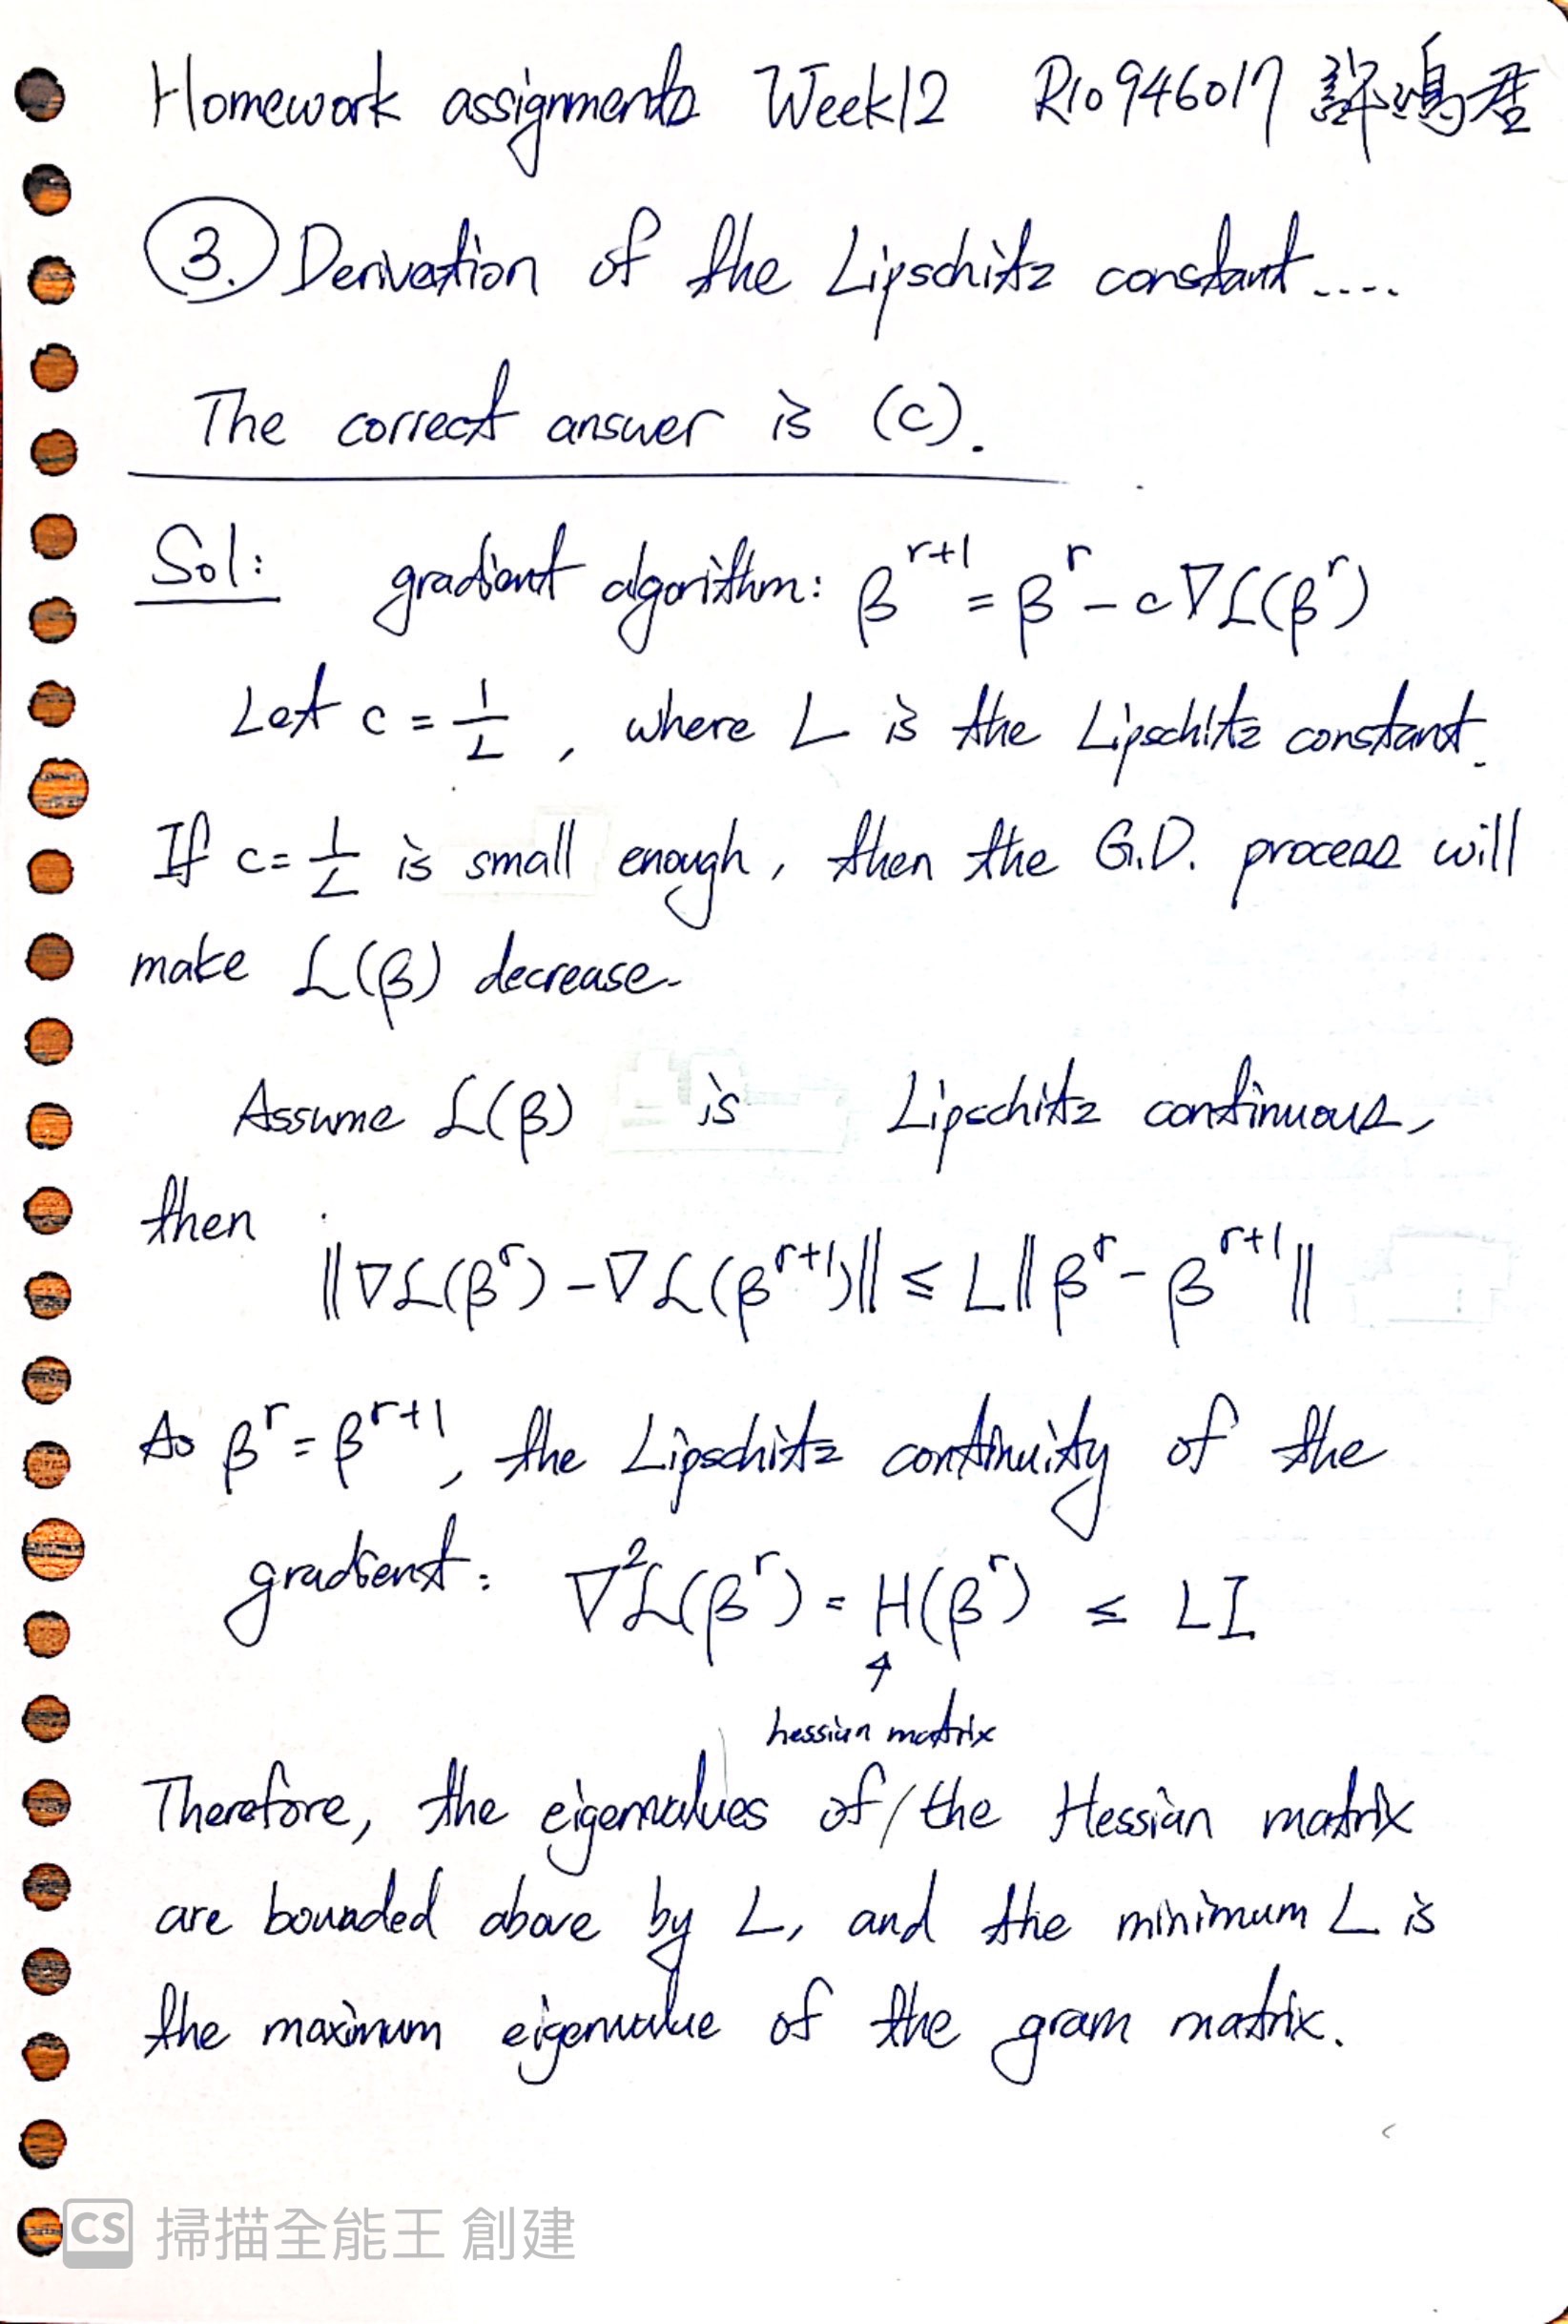 Homework assignments Week12 R10946017 許鳴君
3. Derivation of the Lipschitz constant....
The correct answer is (c).
Sol: gradient algorithm: β^{r+1} = β^r - c∇ℒ(β^r)
Let c = 1/L, where L is the Lipschitz constant.
If c = 1/L is small enough, then the G.D. process will
make ℒ(β) decrease.
Assume ℒ(β) is Lipschitz continuous,
then
||∇ℒ(β^r) - ∇ℒ(β^{r+1})|| ≤ L||β^r - β^{r+1}||
As β^r = β^{r+1}, the Lipschitz continuity of the
gradient: ∇²ℒ(β^r) = H(β^r) ≤ LI
hessian matrix
Therefore, the eigenvalues of the Hessian matrix
are bounded above by L, and the minimum L is
the maximum eigenvalue of the gram matrix.
CS 掃描全能王 創建